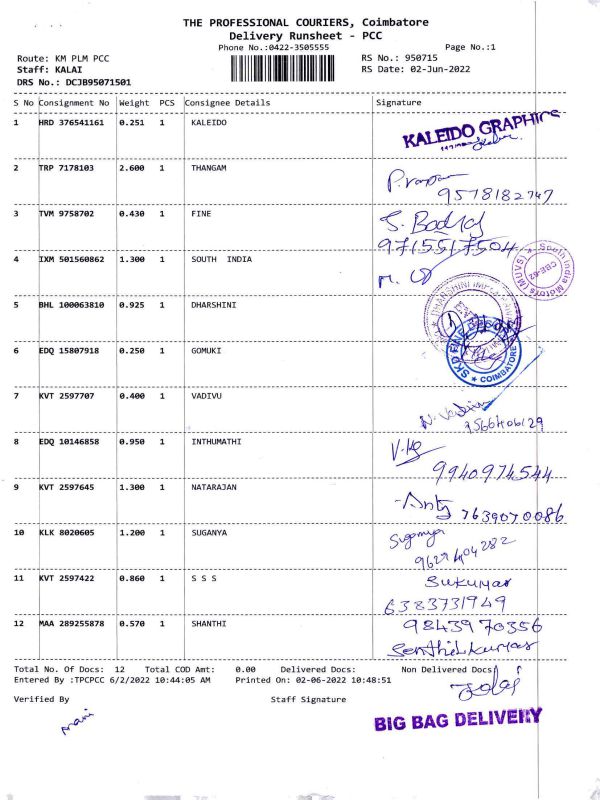 THE PROFESSIONAL COURIERS, Coimbatore
Delivery Runsheet - PCC
Phone No.:0422-3505555 Page No.:1
Route: KM PLM PCC RS No.: 950715
Staff: KALAI RS Date: 02-Jun-2022
DRS No.: DCJB95071501
S No Consignment No Weight PCS Consignee Details Signature
1 HRD 376541161 0.251 1 KALEIDO
KALEIDO GRAPHICS
2 TRP 7178103 2.600 1 THANGAM
9578182747
3 TVM 9758702 0.430 1 FINE
9715517504
4 IXM 501560862 1.300 1 SOUTH INDIA
South India Motors (MUVS) CBE-02
5 BHL 100063810 0.925 1 DHARSHINI
DHARSHINI
6 EDQ 15807918 0.250 1 GOMUKI
COIMBATORE
7 KVT 2597707 0.400 1 VADIVU
9566406129
8 EDQ 10146858 0.950 1 INTHUMATHI
9940974544
9 KVT 2597645 1.300 1 NATARAJAN
7639070086
10 KLK 8020605 1.200 1 SUGANYA
Suganya
9629404282
11 KVT 2597422 0.860 1 S S S
Sukumar
6383731949
12 MAA 289255878 0.570 1 SHANTHI
9843970356
Senthilkumar
Total No. Of Docs: 12 Total COD Amt: 0.00 Delivered Docs: Non Delivered Docs:
Entered By :TPCPCC 6/2/2022 10:44:05 AM Printed On: 02-06-2022 10:48:51
Verified By Staff Signature
mani
BIG BAG DELIVERY